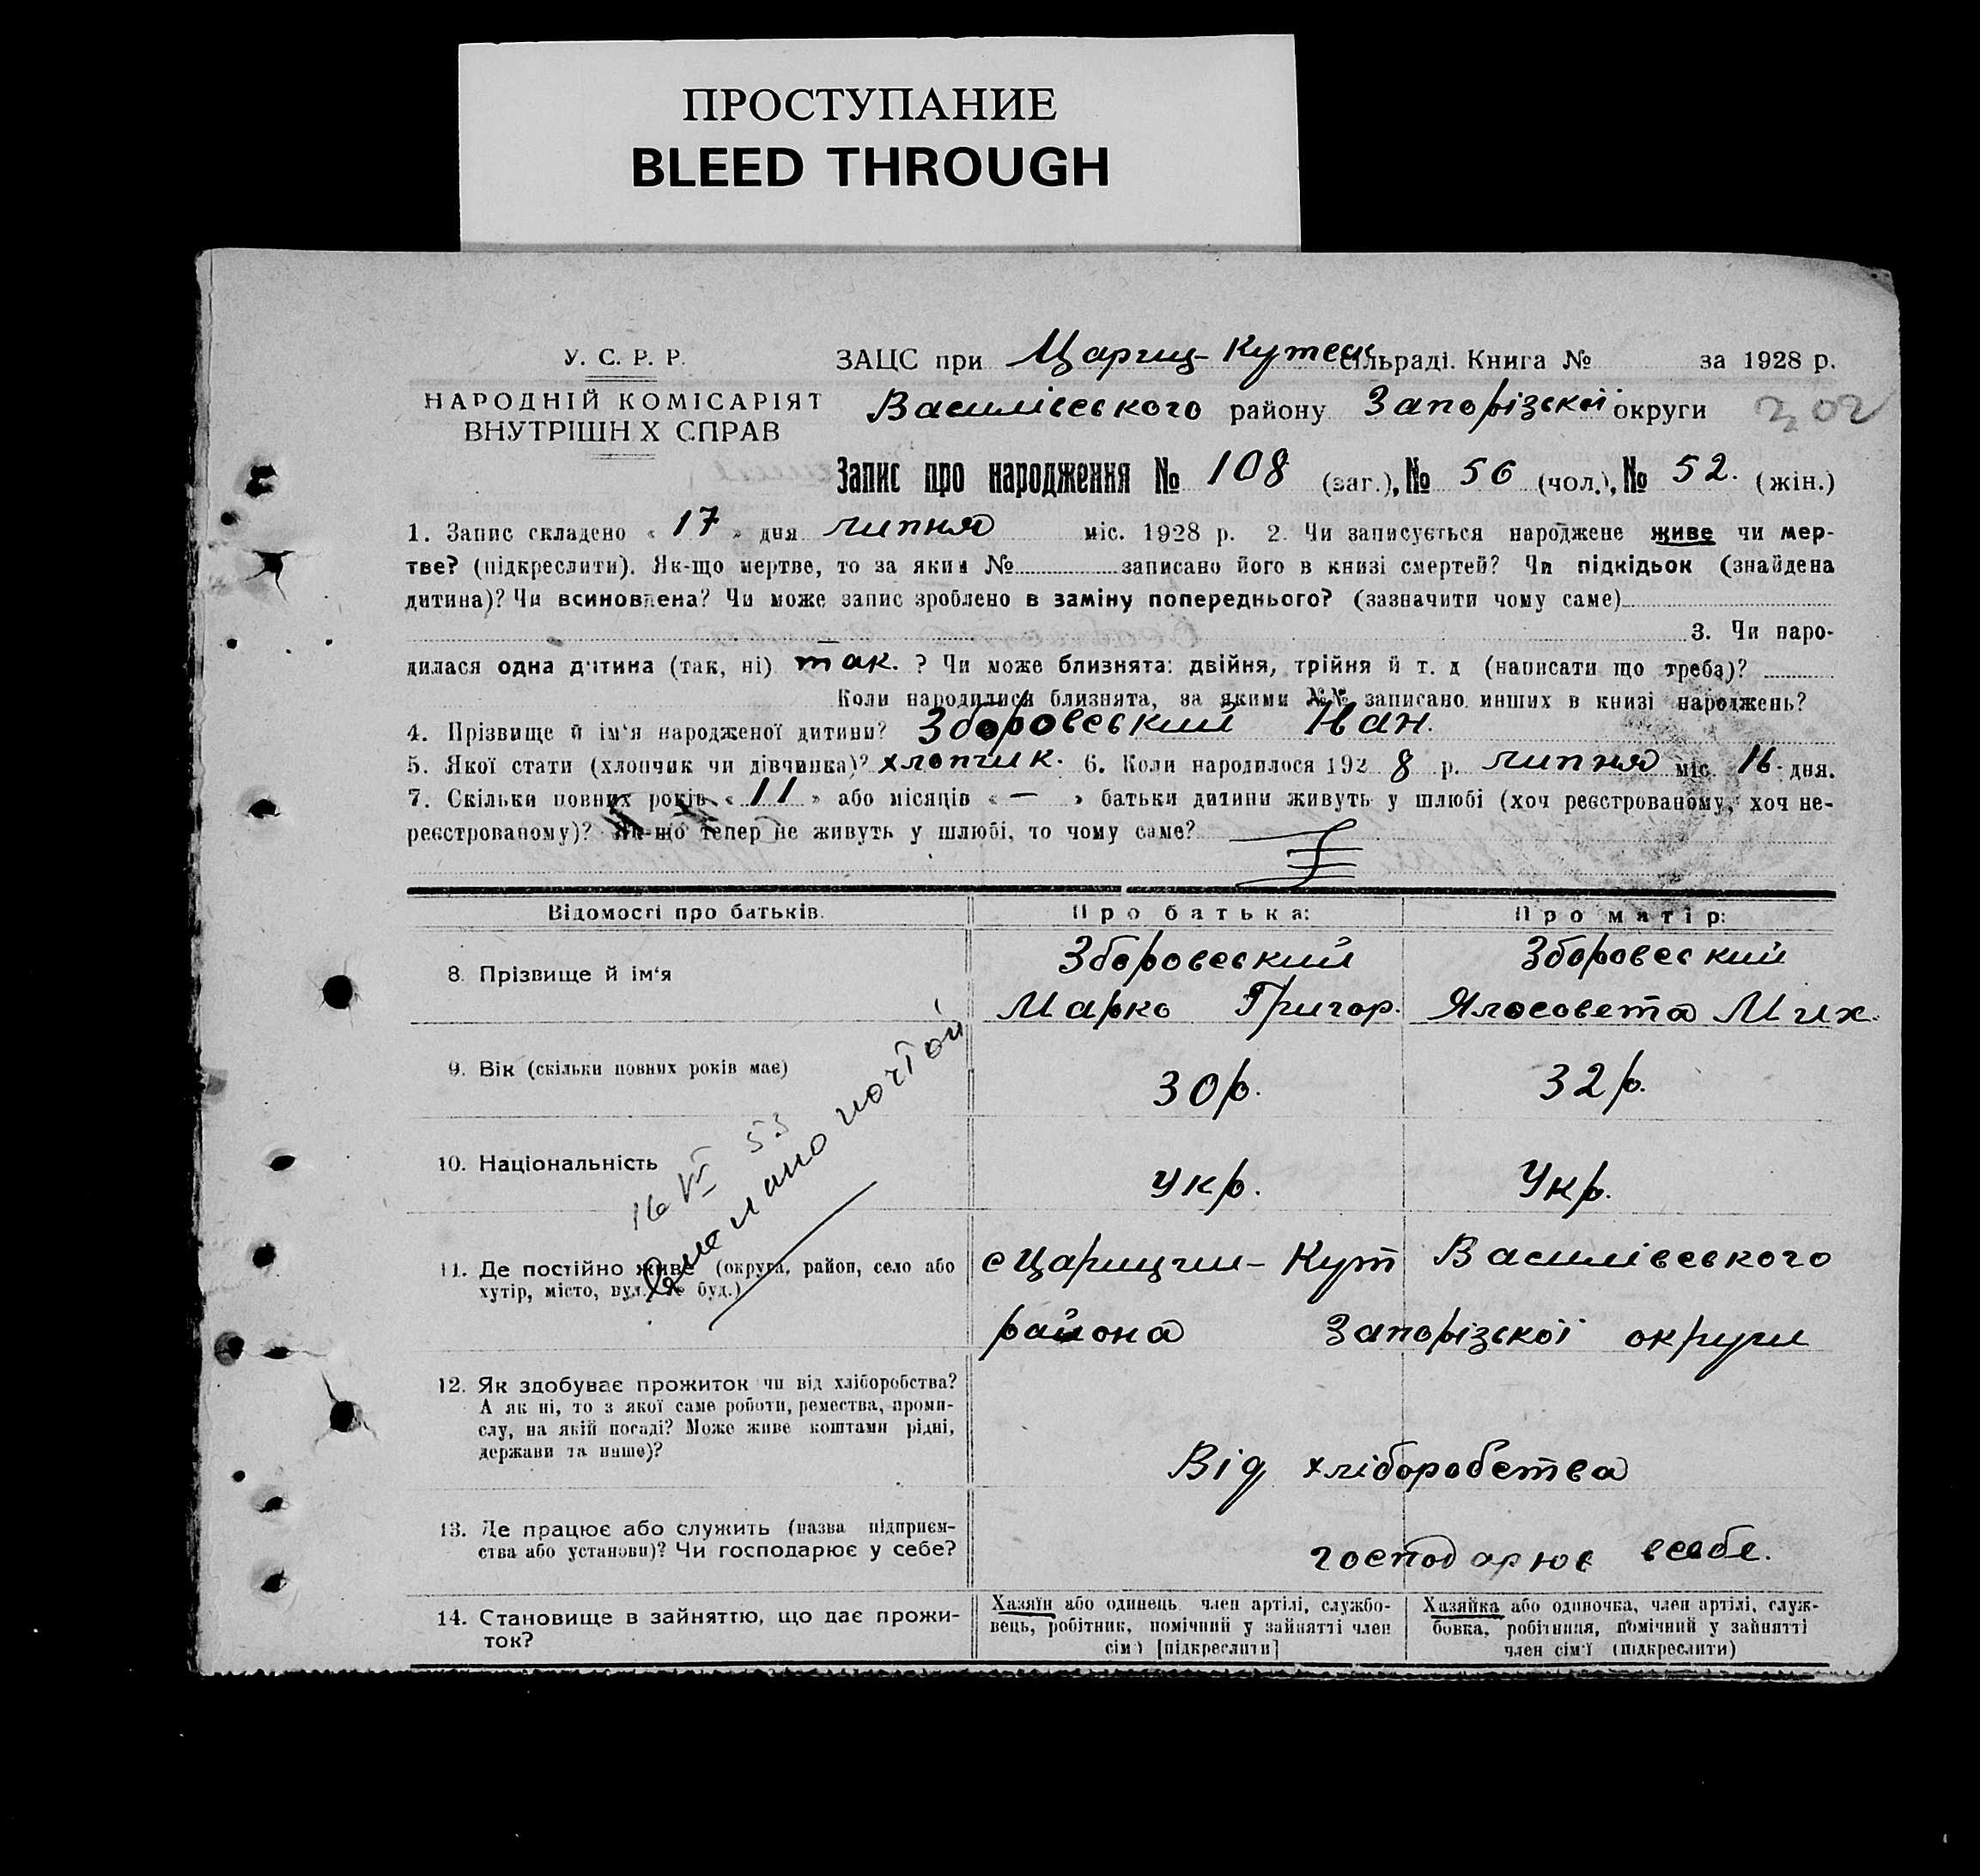 ПРОСТУПАНИЕ
BLEED THROUGH
У. С. Р. Р.
НАРОДНІЙ КОМІСАРІЯТ
ВНУТРІШН Х СПРАВ
ЗАЦС при Цариц-Кутськ сільраді. Книга № за 1928 р.
Василівського району Запорізької округи 202
Запис про народження № 108 (заг.), № 56 (чол.), № 52. (жін.)
1. Запис складено « 17 » дня липня міс. 1928 р. 2. Чи записується народжене живе чи мер-
тве? (підкреслити). Як-що мертве, то за яким № записано його в книзі смертей? Чи підкідьок (знайдена
дитина)? Чи всиновлена? Чи може запис зроблено в заміну попереднього? (зазначити чому саме)
3. Чи наро-
дилася одна дитина (так, ні) так. ? Чи може близнята: двійня, трійня й т. д (написати що треба)?
Коли народилися близнята, за якими №№ записано инших в книзі народжень?
4. Прізвище й ім'я народженої дитини? Зборовський Іван.
5. Якої стати (хлопчик чи дівчинка)? хлопчик. 6. Коли народилося 192 8 р. липня міс. 16 дня.
7. Скільки повних років « 11 » або місяців « — » батьки дитини живуть у шлюбі (хоч реєстрованому, хоч не-
реєстрованому)? Як-що тепер не живуть у шлюбі, то чому саме?
Відомості про батьків.
Про батька:
Про матір:
8. Прізвище й ім'я
Зборовський
Марко Григор.
Зборовський
Ялосовета Мих.
9. Вік (скільки повних років має)
30 р.
32 р.
10. Національність
Укр.
Укр.
16 VI 53
Выслано почтой
11. Де постійно живе (округа, район, село або
хутір, місто, вул. № буд.)
с Царицин-Кут Василівського
района Запорізської округи
12. Як здобуває прожиток чи від хліборобства?
А як ні, то з якої саме роботи, ремества, проми-
слу, на якій посаді? Може живе коштами рідні,
держави та инше)?
Від хліборобства
13. Де працює або служить (назва підприєм-
ства або установи)? Чи господарює у себе?
господарює всебе.
14. Становище в зайняттю, що дає прожи-
ток?
Хазяїн або одинець член артілі, службо-
вець, робітник, помічний у зайнятті член
сім'ї [підкреслити]
Хазяйка або одиночка, член артілі, служ-
бовка, робітниця, помічний у зайнятті
член сім'ї (підкреслити)